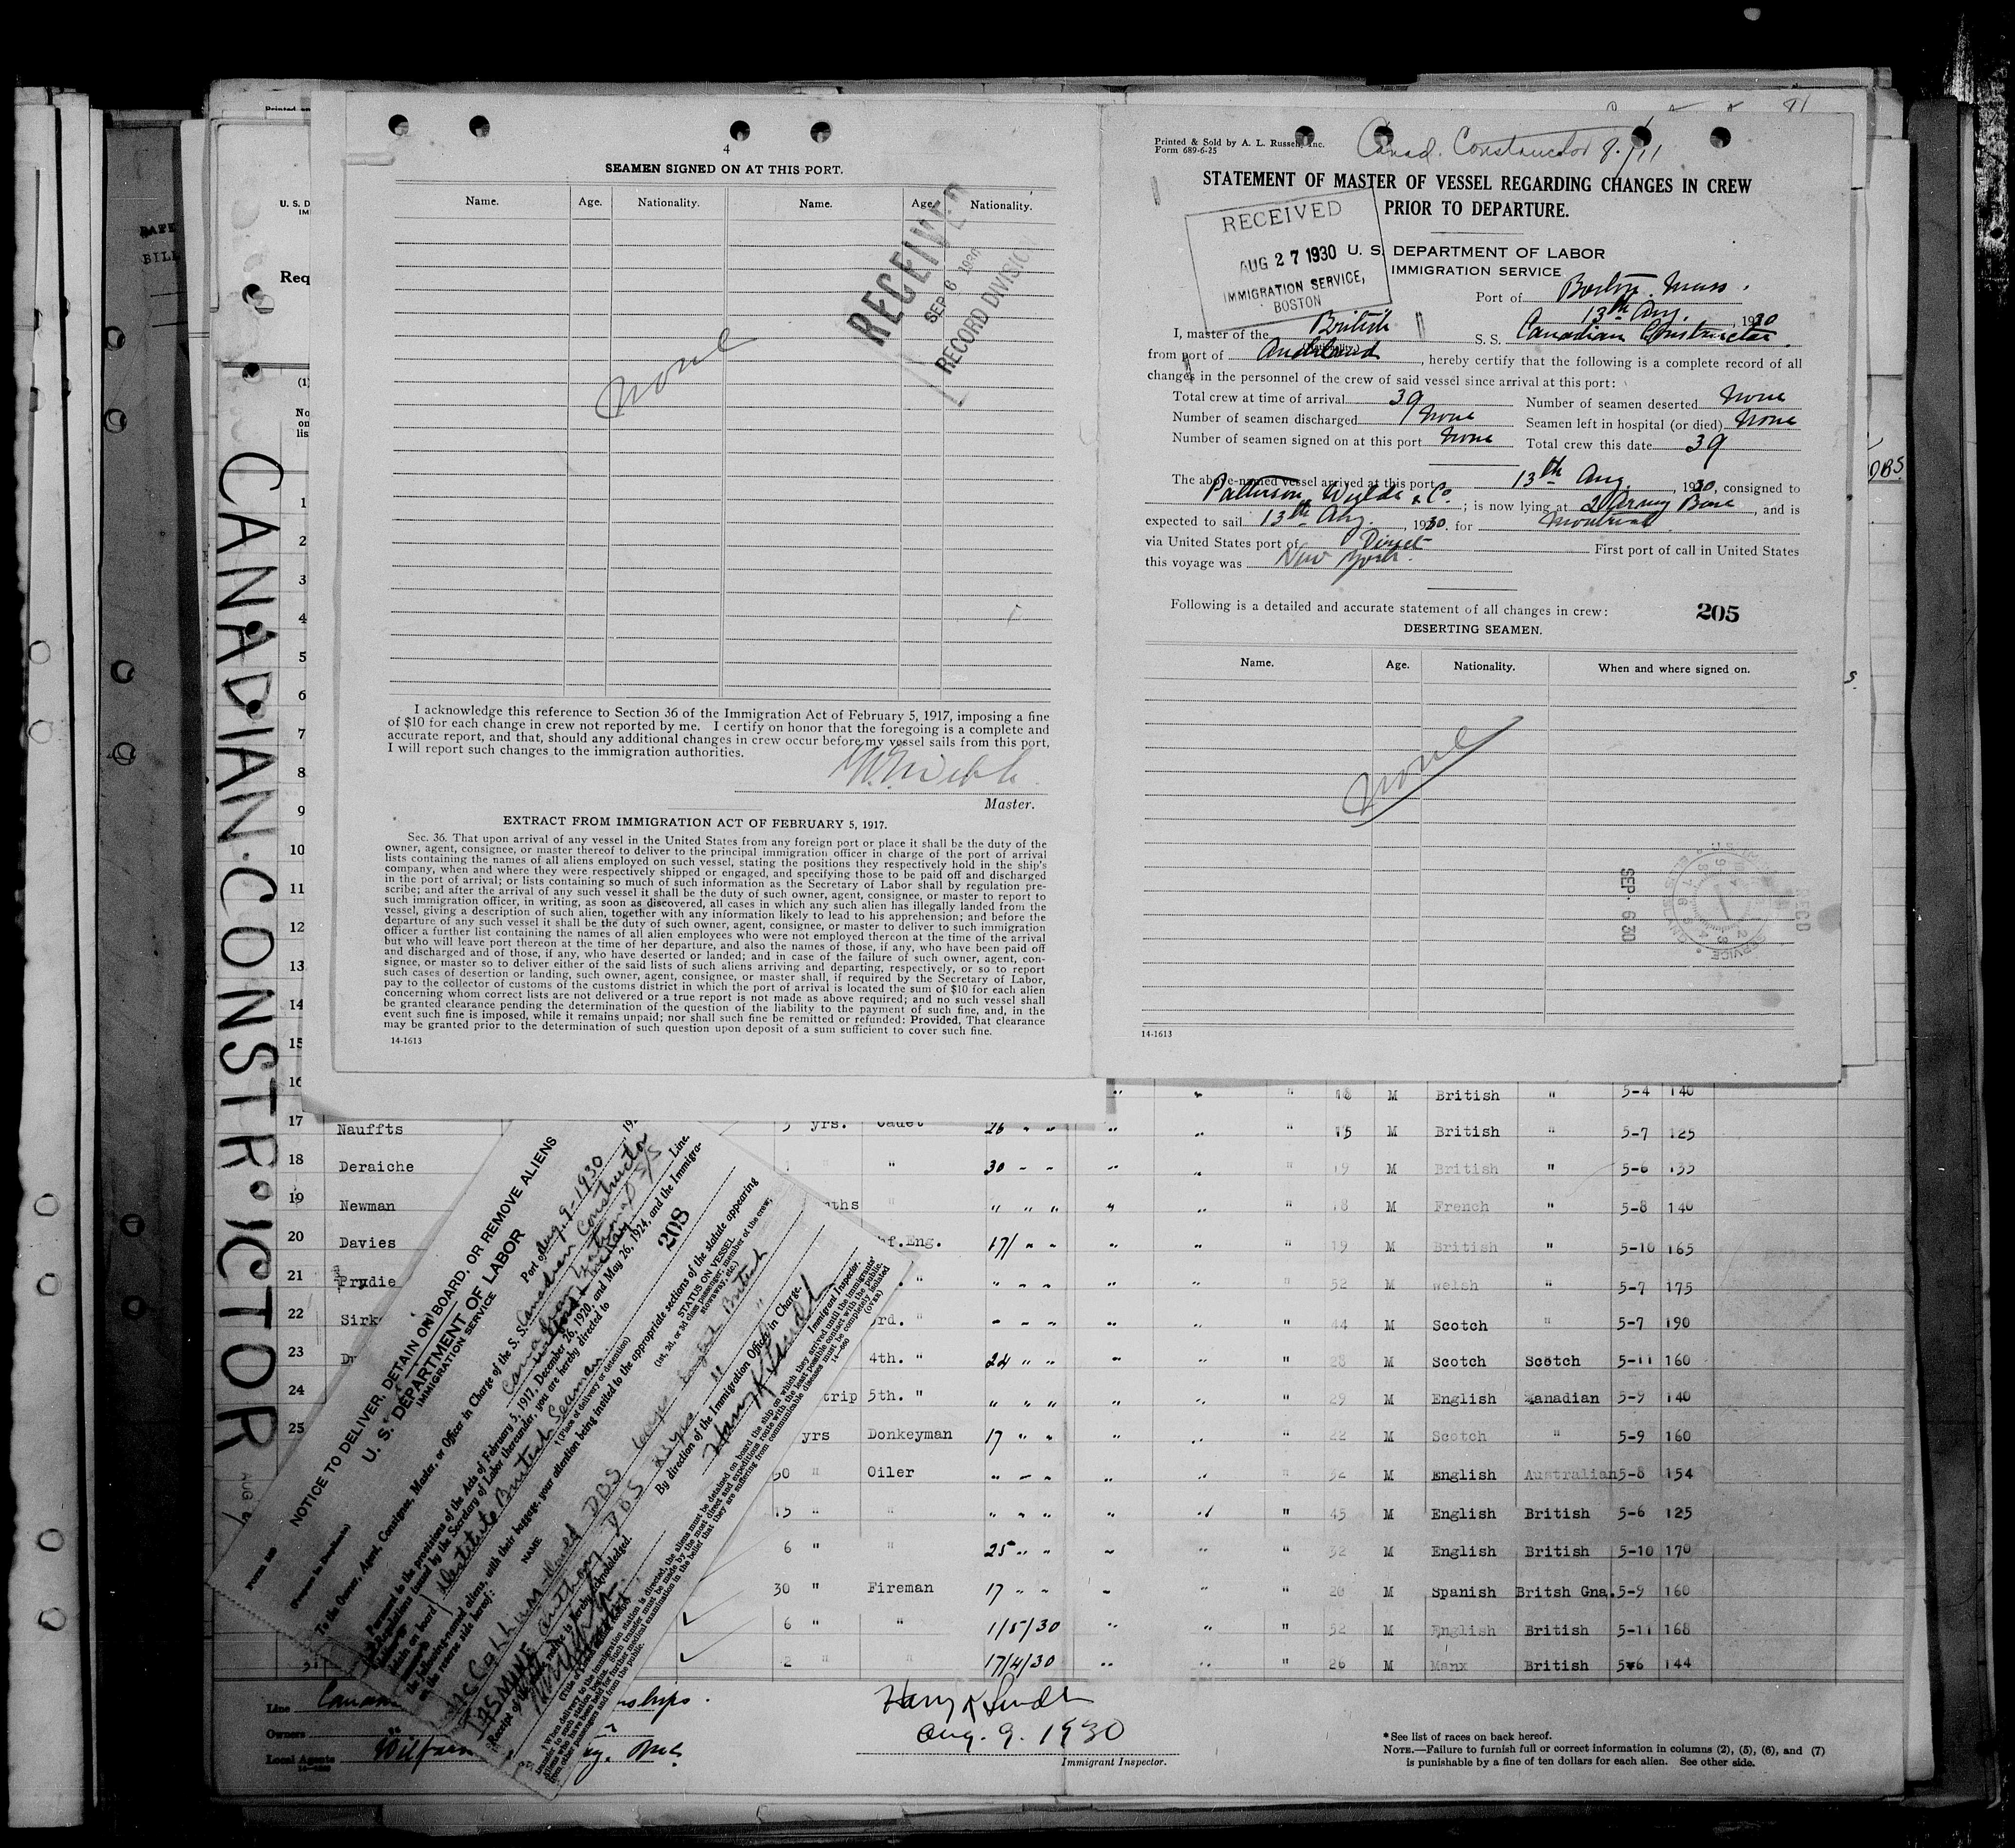 4
SEAMEN SIGNED ON AT THIS PORT.
Name. Age. Nationality. Name. Age. Nationality.
RECEIVED
SEP 6 1930
RECORD DIVISION
none
I acknowledge this reference to Section 36 of the Immigration Act of February 5, 1917, imposing a fine
of $10 for each change in crew not reported by me. I certify on honor that the foregoing is a complete and
accurate report, and that, should any additional changes in crew occur before my vessel sails from this port,
I will report such changes to the immigration authorities.
Master.
EXTRACT FROM IMMIGRATION ACT OF FEBRUARY 5, 1917.
Sec. 36. That upon arrival of any vessel in the United States from any foreign port or place it shall be the duty of the
owner, agent, consignee, or master thereof to deliver to the principal immigration officer in charge of the port of arrival
lists containing the names of all aliens employed on such vessel, stating the positions they respectively hold in the ship's
company, when and where they were respectively shipped or engaged, and specifying those to be paid off and discharged
in the port of arrival; or lists containing so much of such information as the Secretary of Labor shall by regulation pre-
scribe; and after the arrival of any such vessel it shall be the duty of such owner, agent, consignee, or master to report to
such immigration officer, in writing, as soon as discovered, all cases in which any such alien has illegally landed from the
vessel, giving a description of such alien, together with any information likely to lead to his apprehension; and before the
departure of any such vessel it shall be the duty of such owner, agent, consignee, or master to deliver to such immigration
officer a further list containing the names of all alien employees who were not employed thereon at the time of the arrival
but who will leave port thereon at the time of her departure, and also the names of those, if any, who have been paid off
and discharged and of those, if any, who have deserted or landed; and in case of the failure of such owner, agent, con-
signee, or master so to deliver either of the said lists of such aliens arriving and departing, respectively, or so to report
such cases of desertion or landing, such owner, agent, consignee, or master shall, if required by the Secretary of Labor,
pay to the collector of customs of the customs district in which the port of arrival is located the sum of $10 for each alien
concerning whom correct lists are not delivered or a true report is not made as above required; and no such vessel shall
be granted clearance pending the determination of the question of the liability to the payment of such fine, and, in the
event such fine is imposed, while it remains unpaid; nor shall such fine be remitted or refunded: Provided, That clearance
may be granted prior to the determination of such question upon deposit of a sum sufficient to cover such fine.
14-1613
Printed & Sold by A. L. Russell, Inc.
Form 689-6-25
Canad. Constructor 8/11
STATEMENT OF MASTER OF VESSEL REGARDING CHANGES IN CREW
PRIOR TO DEPARTURE.
RECEIVED
AUG 27 1930
IMMIGRATION SERVICE,
BOSTON
U. S. DEPARTMENT OF LABOR
IMMIGRATION SERVICE
Port of Boston. Mass.
13th Aug. , 1930
I, master of the British S. S. Canadian Constructor.
from port of Auckland, hereby certify that the following is a complete record of all
changes in the personnel of the crew of said vessel since arrival at this port:
Total crew at time of arrival 39 Number of seamen deserted none
Number of seamen discharged none Seamen left in hospital (or died) none
Number of seamen signed on at this port none Total crew this date 39
The above-named vessel arrived at this port 13th Aug. , 1930, consigned to
Patterson, Wylde & Co. ; is now lying at Army Base, and is
expected to sail 13th Aug. , 1930. for Montreal
via United States port of Direct First port of call in United States
this voyage was New York.
Following is a detailed and accurate statement of all changes in crew: 205
DESERTING SEAMEN.
Name. Age. Nationality. When and where signed on.
none
SEP. 6 30
REC'D
14-1613
CANADIAN·CONSTR'CTOR
16 18 M British " 5-4 140
17 Nauffts yrs. Cadet 26 " " " " " 15 M British " 5-7 125
18 Deraiche " 30 " " " " 19 M British " 5-6 135
19 Newman " " " " " " 18 M French " 5-8 140
20 Davies Eng. 17/ " " " " " 19 M British " 5-10 165
21 Prydie " " " " " " " 52 M Welsh " 5-7 175
22 Sirk " " " " " " 44 M Scotch " 5-7 190
23 4th. " 24 " " " " " 28 M Scotch Scotch 5-11 160
24 trip 5th. " " " " " " " 29 M English Kanadian 5-9 140
25 yrs Donkeyman 17 " " " " " 22 M Scotch " 5-9 160
30 " Oiler " " " " " " 52 M English Australian 5-8 154
15 " " " " " " " " 45 M English British 5-6 125
6 " " 25 " " " " " 32 M English British 5-10 170
30 " Fireman 17 " " " " " 20 M Spanish Britsh Gna. 5-9 160
6 " " 1/5/30 " " " 52 M English British 5-11 168
2 " " 17/4/30 " " " 26 M Manx British 5-6 144
NOTICE TO DELIVER, DETAIN ON BOARD, OR REMOVE ALIENS
U. S. DEPARTMENT OF LABOR
IMMIGRATION SERVICE
Port of
Aug. 9-1930
To the Owner, Agent, Consignee, Master, or Officer in Charge of the S. S. Canadian Constructor
Line.
Pursuant to the provisions of the Acts of February 5, 1917, December 26, 1920, and May 26, 1924, and the Immigra-
tion Regulations issued by the Secretary of Labor thereunder, you are hereby directed to
208
Destitute British Seaman
(Place of delivery or detention)
the following-named aliens, with their baggage, your attention being invited to the appropriate sections of the statute appearing
on the reverse side hereof:
NAME
STATUS ON VESSEL
(1st, 2d, or 3d class passenger, member of the crew,
stowaway, etc.)
McCallum David DBS
Jasmine Anthony DBS
By direction of the Immigration Officer in Charge.
Harry K Lindh
Immigrant Inspector.
Line
Owners
Local Agents
Harry K Lindh
Aug. 9. 1930
Immigrant Inspector.
* See list of races on back hereof.
NOTE.—Failure to furnish full or correct information in columns (2), (5), (6), and (7)
is punishable by a fine of ten dollars for each alien. See other side.